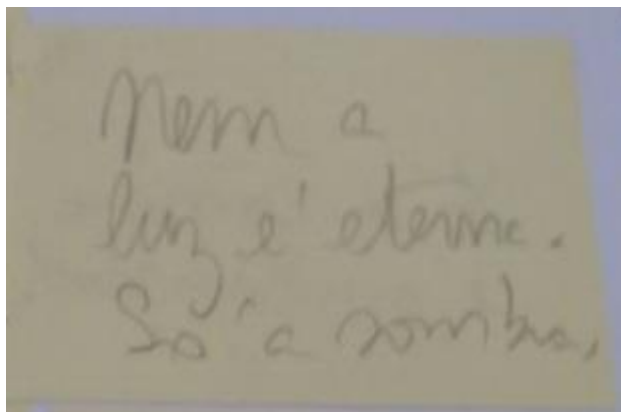 Nem a
luz é eterna.
Só a sombra,